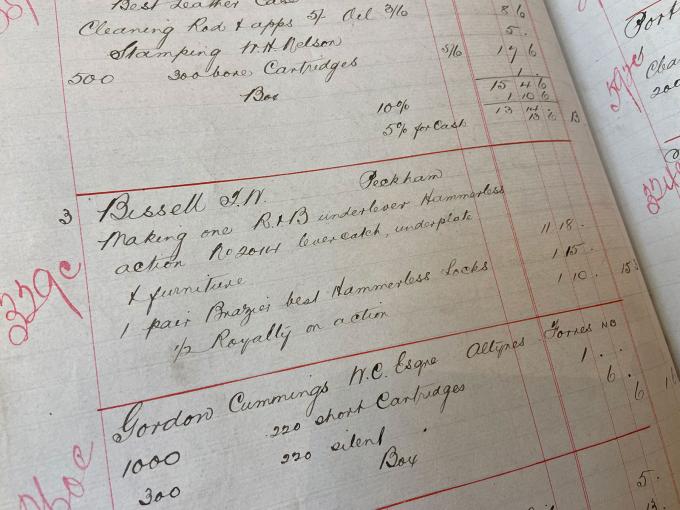 Best Leather Case
Cleaning Rod & apps 5/- Oil 3/6 8 6
Stamping W.H. Nelson 5.
500 300 bore Cartridges 5/6 1 7 6
Box 1 .
15 4 6
10% 1 10 6
5% for Cash 13 14
13 6 B
3 Bissell T.W. Peckham
Making one R.&B underlever Hammerless
action No 2014 lever catch, underplate
& furniture 11 18 .
1 pair Brazier best Hammerless Locks 1 15 .
1/2 Royalty on action 1 10 . 15 3
329c
Gordon Cummings W.C. Esqre Altyres Forres NB
1000 220 short Cartridges 1 . .
300 220 silent 6 .
Box 6
5.